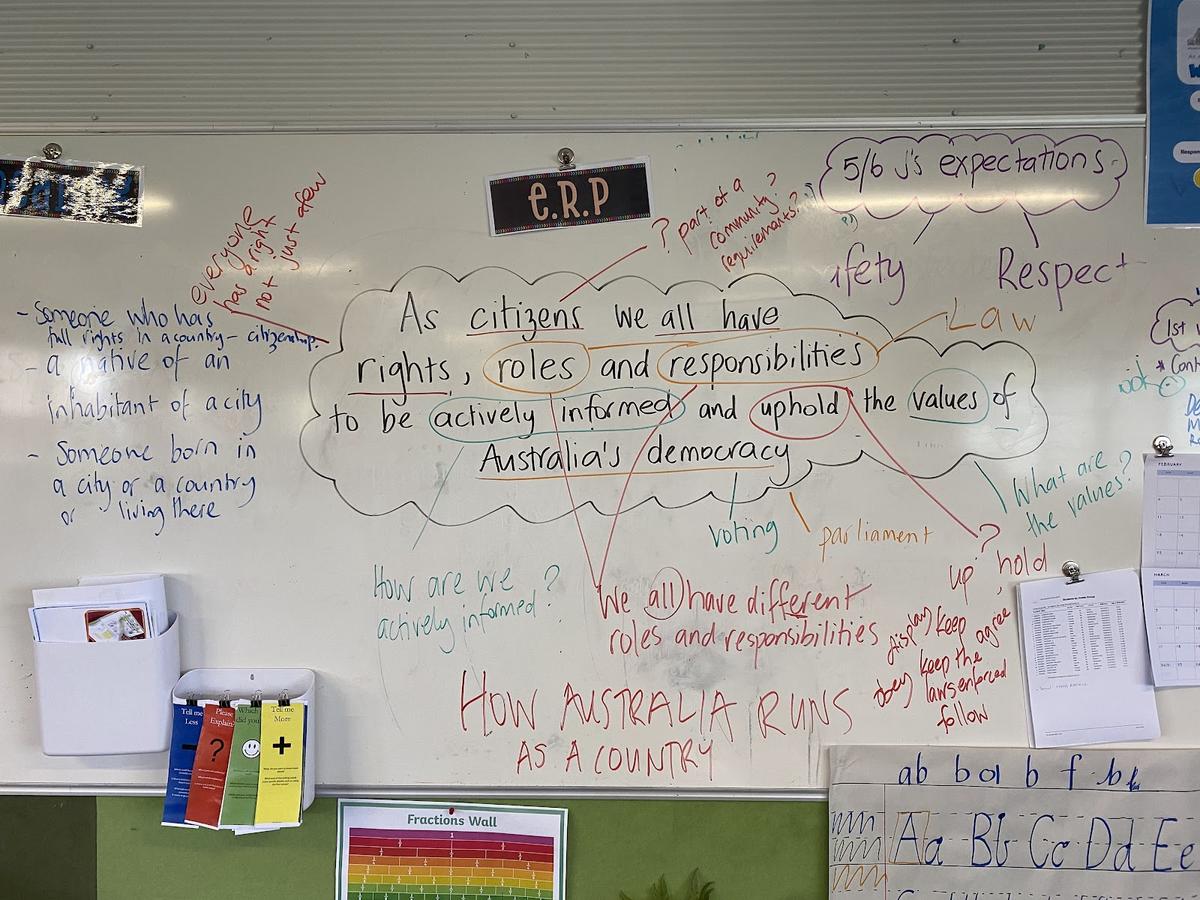 e.R.P
5/6 J's expectations
afety
Respect
everyone
has a right
not just a few
? part of a
community?
requirements?
As citizens we all have
rights, roles and responsibilities
to be actively informed and uphold the values of
Australia's democracy
Law
- Someone who has
full rights in a country - citizenship.
- a native of an
inhabitant of a city
- Someone born in
a city or a country
or living there
How are we
actively informed?
voting
parliament
What are
the values?
?
up, hold
display keep
obey keep the agree
laws enforced
follow
We all have different
roles and responsibilities
HOW AUSTRALIA RUNS
AS A COUNTRY
1st
FEBRUARY
MARCH
Tell me
Less
Please
Explain
?
Which
did you
Tell me
More
+
Fractions Wall
1
Aa Bb Cc Dd Ee